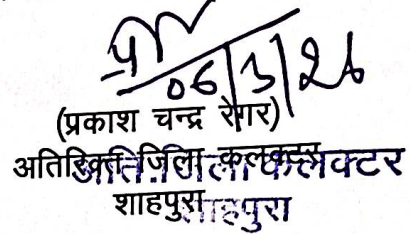 06/3/26
(प्रकाश चन्द्र रेगर)
अतिरिक्त जिला कलक्टर
अति.जिला कलक्टर
शाहपुरा
शाहपुरा